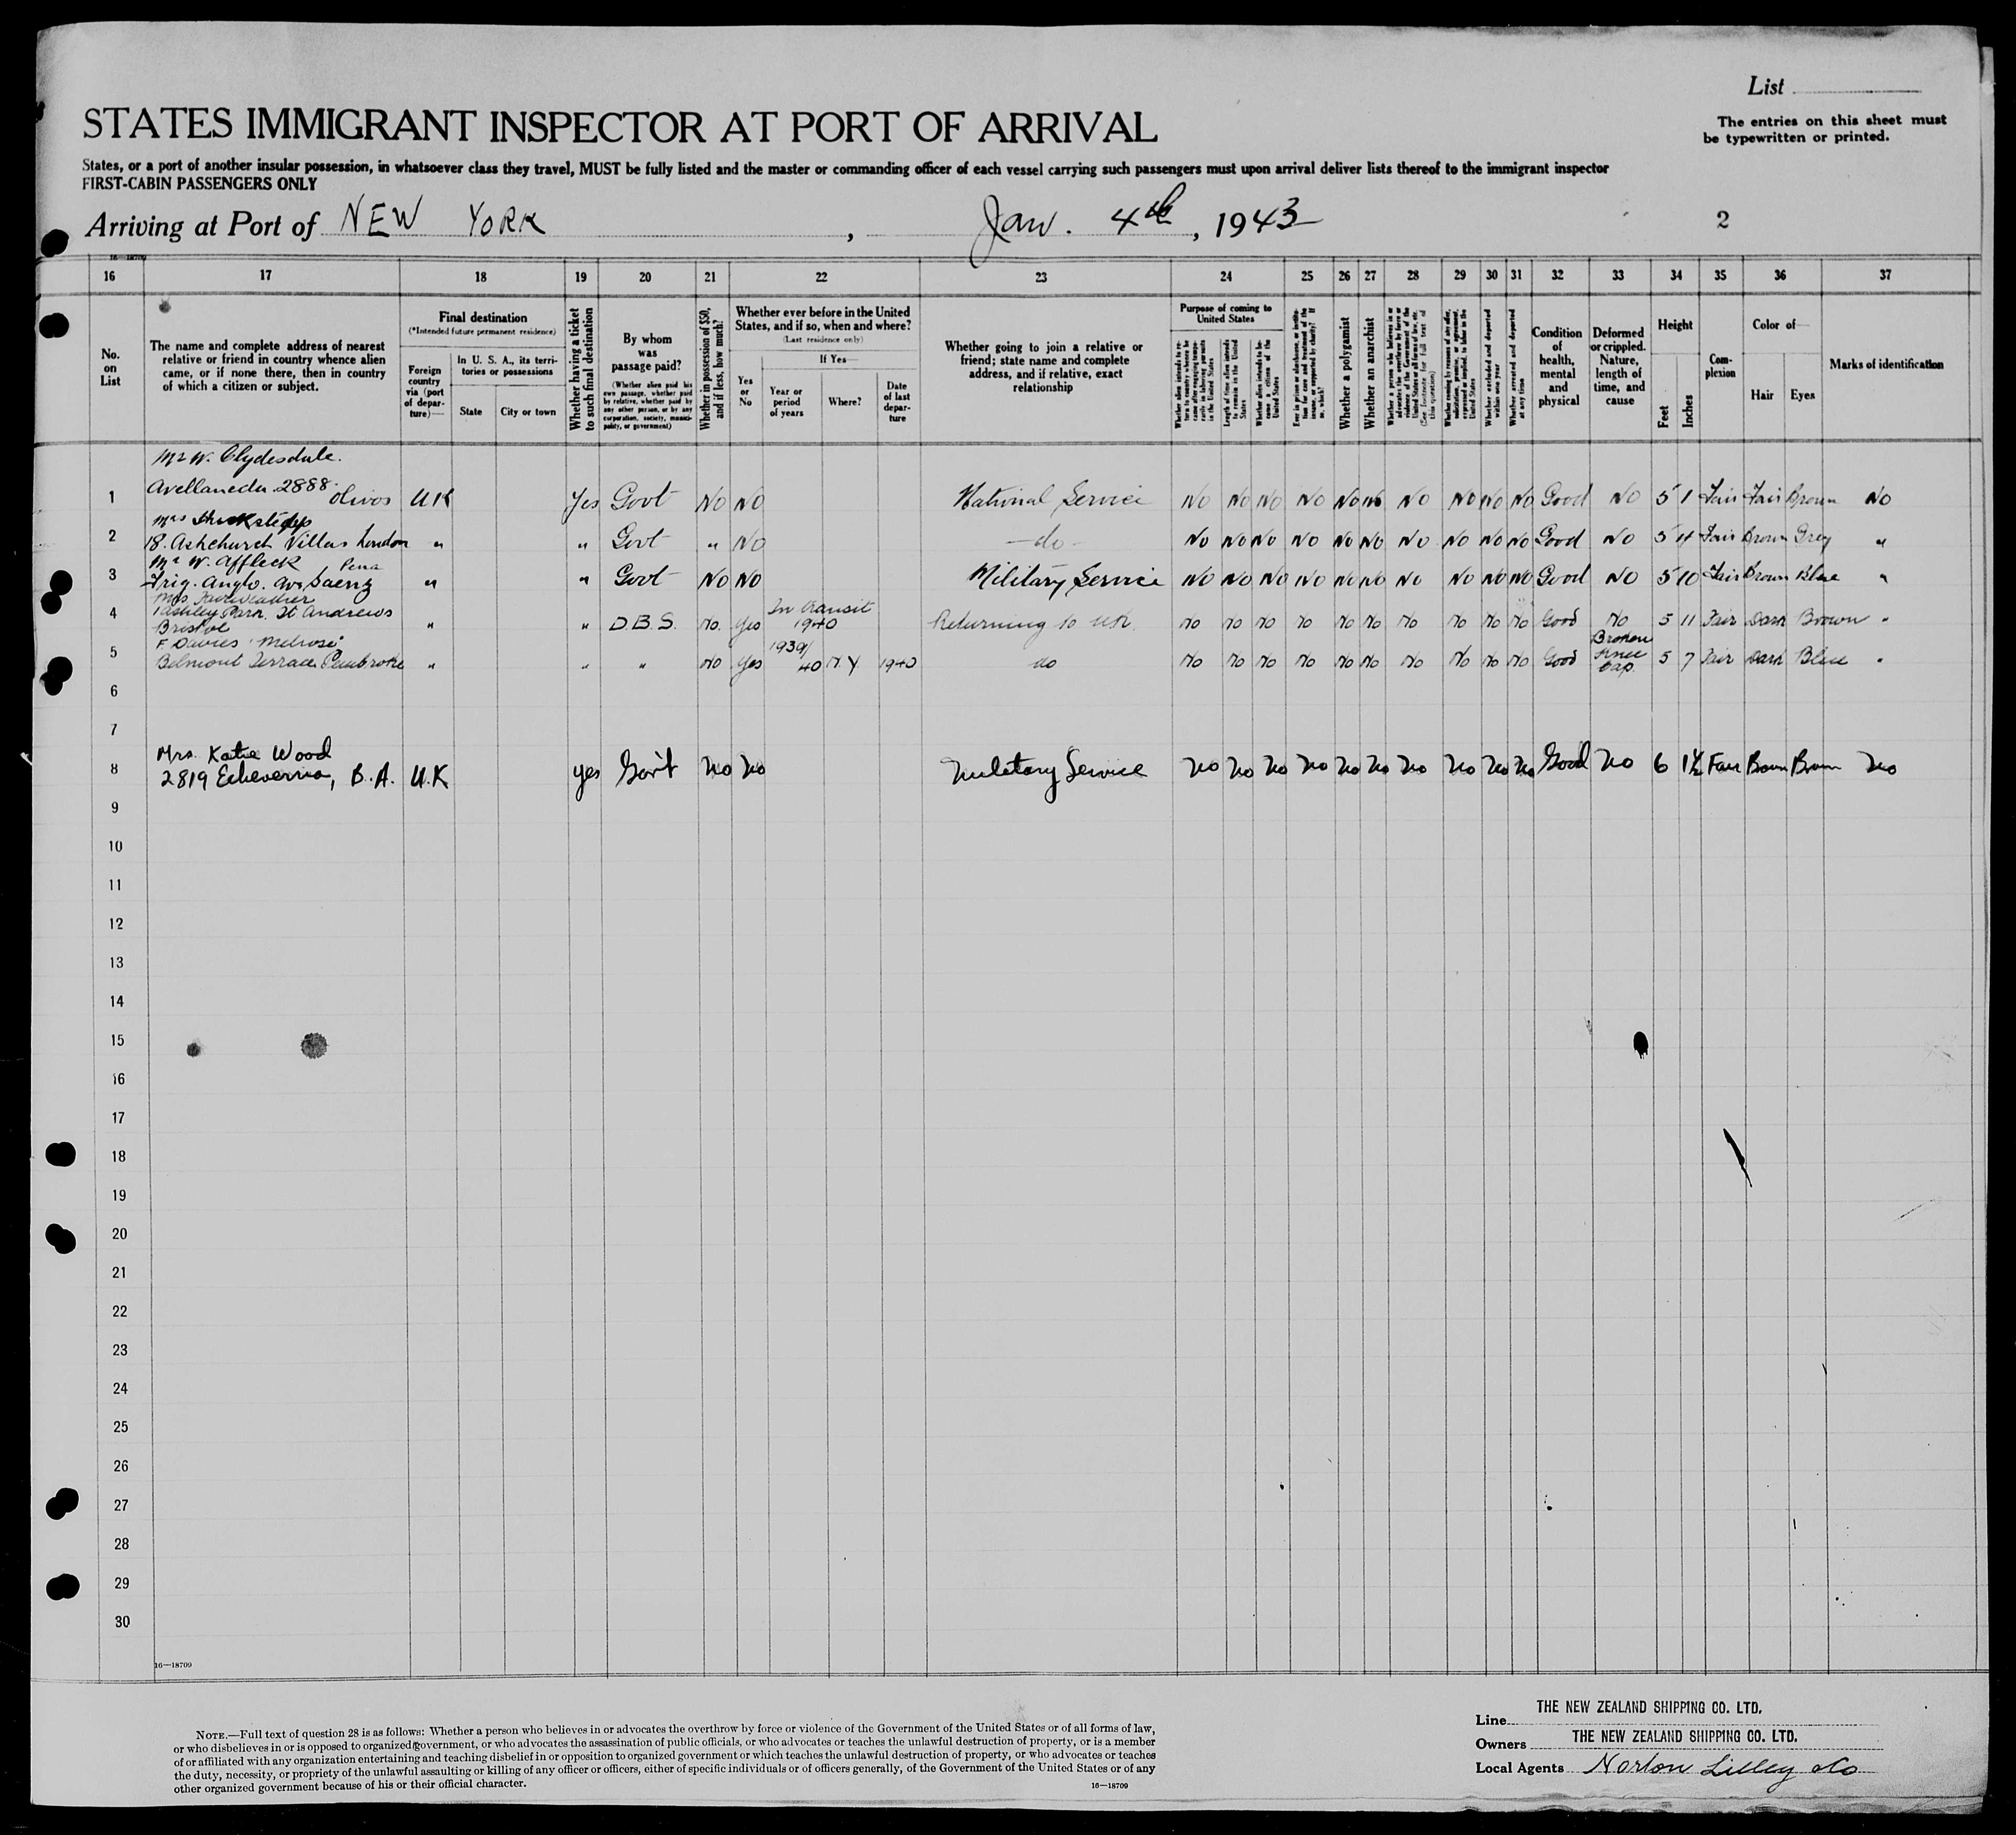 List
The entries on this sheet must
be typewritten or printed.
STATES IMMIGRANT INSPECTOR AT PORT OF ARRIVAL
States, or a port of another insular possession, in whatsoever class they travel, MUST be fully listed and the master or commanding officer of each vessel carrying such passengers must upon arrival deliver lists thereof to the immigrant inspector
FIRST-CABIN PASSENGERS ONLY
Arriving at Port of NEW YORK, Jan. 4th, 1943
2
16—18709
16 17 18 19 20 21 22 23 24 25 26 27 28 29 30 31 32 33 34 35 36 37
No. on List
The name and complete address of nearest relative or friend in country whence alien came, or if none there, then in country of which a citizen or subject.
Final destination
(*Intended future permanent residence)
Foreign country via (port of departure)—
In U. S. A., its territories or possessions
State
City or town
Whether having a ticket to such final destination
By whom was passage paid?
(Whether alien paid his own passage, whether paid by relative, whether paid by any other person, or by any corporation, society, municipality, or government)
Whether in possession of $50, and if less, how much?
Whether ever before in the United States, and if so, when and where?
(Last residence only)
Yes or No
If Yes—
Year or period of years
Where?
Date of last departure
Whether going to join a relative or friend; state name and complete address, and if relative, exact relationship
Purpose of coming to United States
Length of time alien intends to remain in the United States
Whether alien intends to become a citizen of the United States
Whether a polygamist
Whether an anarchist
Whether excluded and deported within one year
Whether arrested and deported at any time
Condition of health, mental and physical
Deformed or crippled. Nature, length of time, and cause
Height
Feet
Inches
Complexion
Color of—
Hair
Eyes
Marks of identification
Mr W. Clydesdale.
1 Avellaneda 2888. Olivos U.K Yes Govt No No National Service No No No No No No No No No No Good No 5 1 Fair Fair Brown No
Mrs
2 18. Ashchurch Villas London " " Govt " No —do— No No No No No No No No No No Good No 5 4 Fair Brown Grey "
Mr W. Affleck Pena
3 Frig. Anglo. Av. Saenz " " Govt No No Military Service No No No No No No No No No No Good No 5 10 Fair Brown Blue "
Mrs Fairweather
4 1 Ashley Park. St Andrews " " D.B.S. No. Yes In transit 1940 Returning to UK. No No No No No No No No No No Good No 5 11 Fair Dark Brown "
Bristol
F. Davies 'Melrose'
5 Belmont Terrace Pembroke " " " No Yes 1939/40 N.Y 1940 do No No No No No No No No No No Good Broken Knee Cap. 5 7 Fair Dark Blue "
6
7
Mrs. Katie Wood
8 2819 Echeverria, B.A. U.K yes Gov't No No Military Service No No No No No No No No No No Good No 6 1½ Fair Brown Brown No
9
10
11
12
13
14
15
16
17
18
19
20
21
22
23
24
25
26
27
28
29
30
16—18709
NOTE.—Full text of question 28 is as follows: Whether a person who believes in or advocates the overthrow by force or violence of the Government of the United States or of all forms of law,
or who disbelieves in or is opposed to organized government, or who advocates the assassination of public officials, or who advocates or teaches the unlawful destruction of property, or is a member
of or affiliated with any organization entertaining and teaching disbelief in or opposition to organized government or which teaches the unlawful destruction of property, or who advocates or teaches
the duty, necessity, or propriety of the unlawful assaulting or killing of any officer or officers, either of specific individuals or of officers generally, of the Government of the United States or of any
other organized government because of his or their official character.
16—18709
Line THE NEW ZEALAND SHIPPING CO. LTD.
Owners THE NEW ZEALAND SHIPPING CO. LTD.
Local Agents Norton Lilley & Co